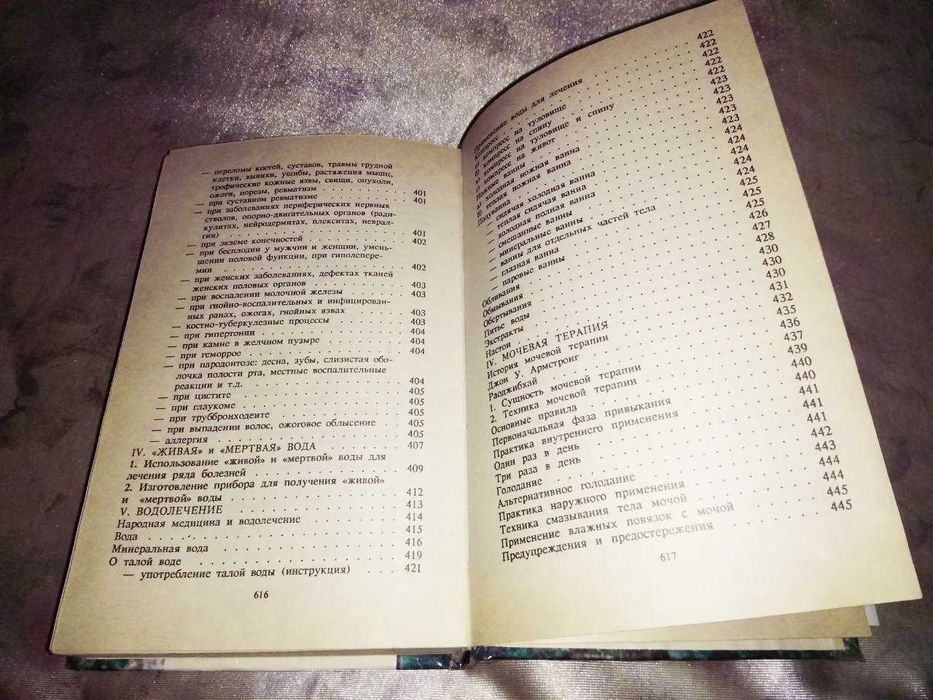 — переломы костей, суставов, травмы грудной
клетки, вывихи, ушибы, растяжения мышц,
трофические кожные язвы, свищи, опухоли,
ожоги, порезы, ревматизм . . . 401
— при суставном ревматизме . . . 401
— при заболеваниях периферических нервных
стволов, опорно-двигательных органов (ради-
кулитах, нейродермитах, плекситах, неврал-
гии) . . . 401
— при экземе конечностей . . . 402
— при бесплодии у мужчин и женщин, умень-
шении половой функции, при гиполспере-
мии . . . 402
— при женских заболеваниях, дефектах тканей
женских половых органов . . . 403
— при воспалении молочной железы . . . 403
— при гнойно-воспалительных и инфицирован-
ных ранах, ожогах, гнойных язвах . . . 403
— костно-туберкулезные процессы . . . 403
— при гипертонии . . . 404
— при камне в желчном пузыре . . . 404
— при геморрое . . . 404
— при пародонтозе: лесна, зубы, слизистая обо-
лочка полости рта, местные воспалительные
реакции и т.д. . . . 404
— при цистите . . . 405
— при глаукоме . . . 405
— при труббронходеите . . . 405
— при выпадении волос, ожоговое облысение . . . 405
— аллергия . . . 405
IV. «ЖИВАЯ» и «МЕРТВАЯ» ВОДА . . . 407
1. Использование «живой» и «мертвой» воды для
лечения ряда болезней . . . 409
2. Изготовление прибора для получения «живой»
и «мертвой» воды . . . 412
V. ВОДОЛЕЧЕНИЕ . . . 413
Народная медицина и водолечение . . . 414
Вода . . . 415
Минеральная вода . . . 416
О талой воде . . . 419
— употребление талой воды (инструкция) . . . 421
616
Применение воды для лечения
Компресс
а) компресс на туловище
б) компресс на спину . . . 422
в) компресс на туловище и спину . . . 422
г) компресс на живот . . . 422
Ножные ванны . . . 422
а) холодная ножная ванна . . . 423
б) теплая ножная ванна . . . 423
Полуванна . . . 423
— сидячая холодная ванна . . . 423
— теплая сидячая ванна . . . 424
— холодная полная ванна . . . 424
— смешанные ванны . . . 424
— минеральные ванны . . . 424
— ванны для отдельных частей тела . . . 425
— глазная ванна . . . 425
— паровые ванны . . . 425
Обливания . . . 426
Обмывания . . . 427
Обертывания . . . 428
Питье воды . . . 430
Экстракты . . . 430
Настои . . . 430
IV. МОЧЕВАЯ ТЕРАПИЯ . . . 431
История мочевой терапии . . . 432
Джон У. Армстронг . . . 435
Раоджибхай . . . 436
1. Сущность мочевой терапии . . . 437
2. Техника мочевой терапии . . . 439
Основные правила . . . 440
Первоначальная фаза привыкания . . . 440
Практика внутреннего применения . . . 441
Один раз в день . . . 441
Три раза в день . . . 441
Голодание . . . 442
Альтернативное голодание . . . 443
Практика наружного применения . . . 444
Техника смазывания тела мочой . . . 444
Применение влажных повязок с мочой . . . 445
Предупреждения и предостережения . . . 445
617